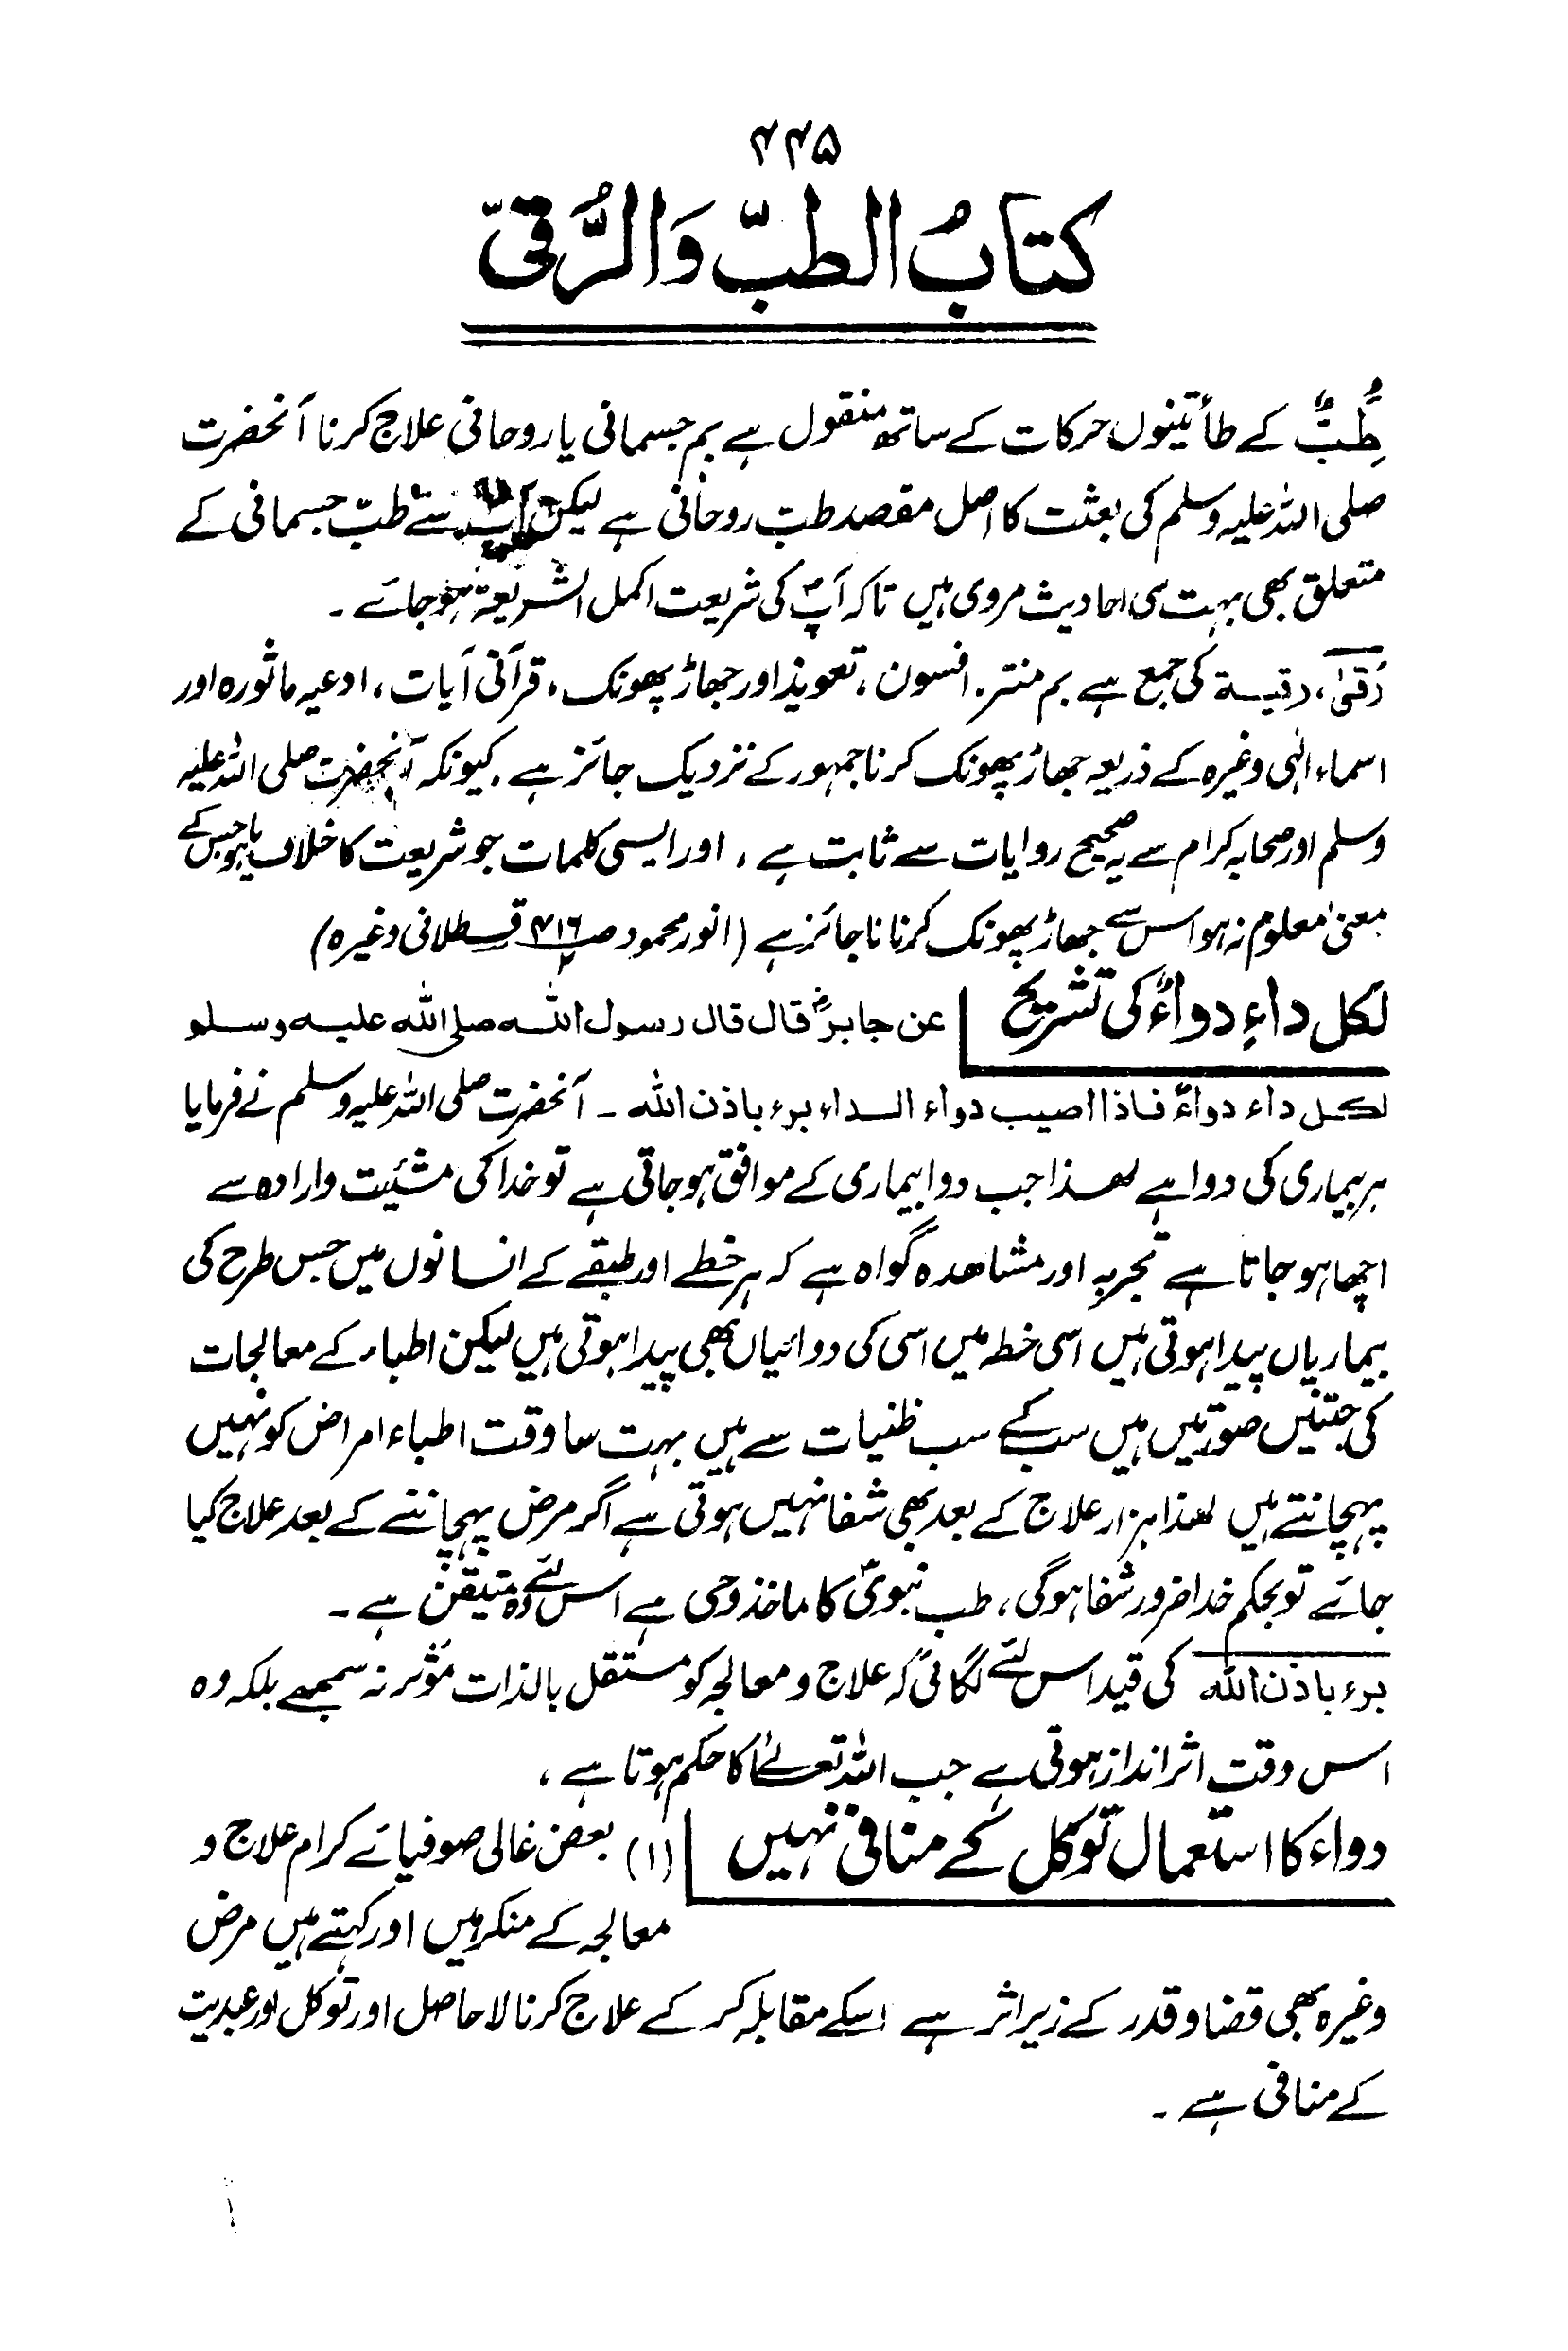 ۴۴۵
کتابُ الطبّ وَالرُّقیّ
طُِبٌّ کے طأ تینوں حرکات کے ساتھ منقول ہے بم جسمانی یا روحانی علاج کرنا آنحضرت
صلی اللہ علیہ وسلم کی بعثت کا اصل مقصد طب روحانی ہے لیکن آپ سے طبّ جسمانی کے
متعلق بھی بہت سی احادیث مروی ہیں تاکہ آپؐ کی شریعت اکمل الشریعۃ ہوجائے ۔
رُقیٰ، رقیـة کی جمع ہے بم منتر. افسون، تعویذ اور جھاڑ پھونک، قرآنی آیات، ادعیہ ماثورہ اور
اسماء الٰہی وغیرہ کے ذریعہ جھاڑ پھونک کرنا جمہور کے نزدیک جائز ہے. کیونکہ آنحضرت صلی اللہ علیہ
وسلم اور صحابہ کرام سے یہ صحیح روایات سے ثابت ہے، اور ایسی کلمات جو شریعت کا خلاف ہو یا جس کے
معنیٰ معلوم نہ ہو اس سے جھاڑ پھونک کرنا ناجائز ہے (انور محمود ص ۴۱۶/۲ قسطلانی وغیرہ)
لکل داءٍ دواءٌ کی تشریح
عن جابرؓ قال قال رسول اللہ صلی اللہ علیہ وسلم
لکل داء دواءٌ فاذا اصیب دواء الداء برء باذن اللہ ۔ آنحضرت صلی اللہ علیہ وسلم نے فرمایا
ہر بیماری کی دوا ہے لھذا جب دوا بیماری کے موافق ہوجاتی ہے تو خدا کی مشئیت وارادہ سے
اچھا ہوجاتا ہے تجربہ اور مشاھدہ گواہ ہے کہ ہر خطے اور طبقے کے انسانوں میں جس طرح کی
بیماریاں پیدا ہوتی ہیں اسی خطہ میں اسی کی دوائیاں بھی پیدا ہوتی ہیں لیکن اطباء کے معالجات
کی جتنیں صورتیں ہیں سب کے سب ظنیات سے ہیں بہت سا وقت اطباء امراض کو نہیں
پہچانتے ہیں لھذا ہزار علاج کے بعد بھی شفا نہیں ہوتی ہے اگر مرض پہچاننے کے بعد علاج کیا
جائے تو بحکم خدا ضرور شفا ہوگی، طب نبویؐ کا ماخذ وحی ہے اس لئے وہ متیقن ہے ۔
برء باذن اللہ کی قید اس لئے لگائی کہ علاج و معالجہ کو مستقل بالذات مؤثر نہ سمجھے بلکہ وہ
اس وقت اثر انداز ہوتی ہے جب اللہ تعالےٰ کا حکم ہوتا ہے،
دواء کا استعمال توکل کے منافی نہیں
(۱) بعض غالی صوفیائے کرام علاج و
معالجہ کے منکر ہیں اور کہتے ہیں مرض
وغیرہ بھی قضا و قدر کے زیر اثر ہے اسکے مقابلہ کر کے علاج کرنا لاحاصل اور توکل اور عبدیت
کے منافی ہے ۔